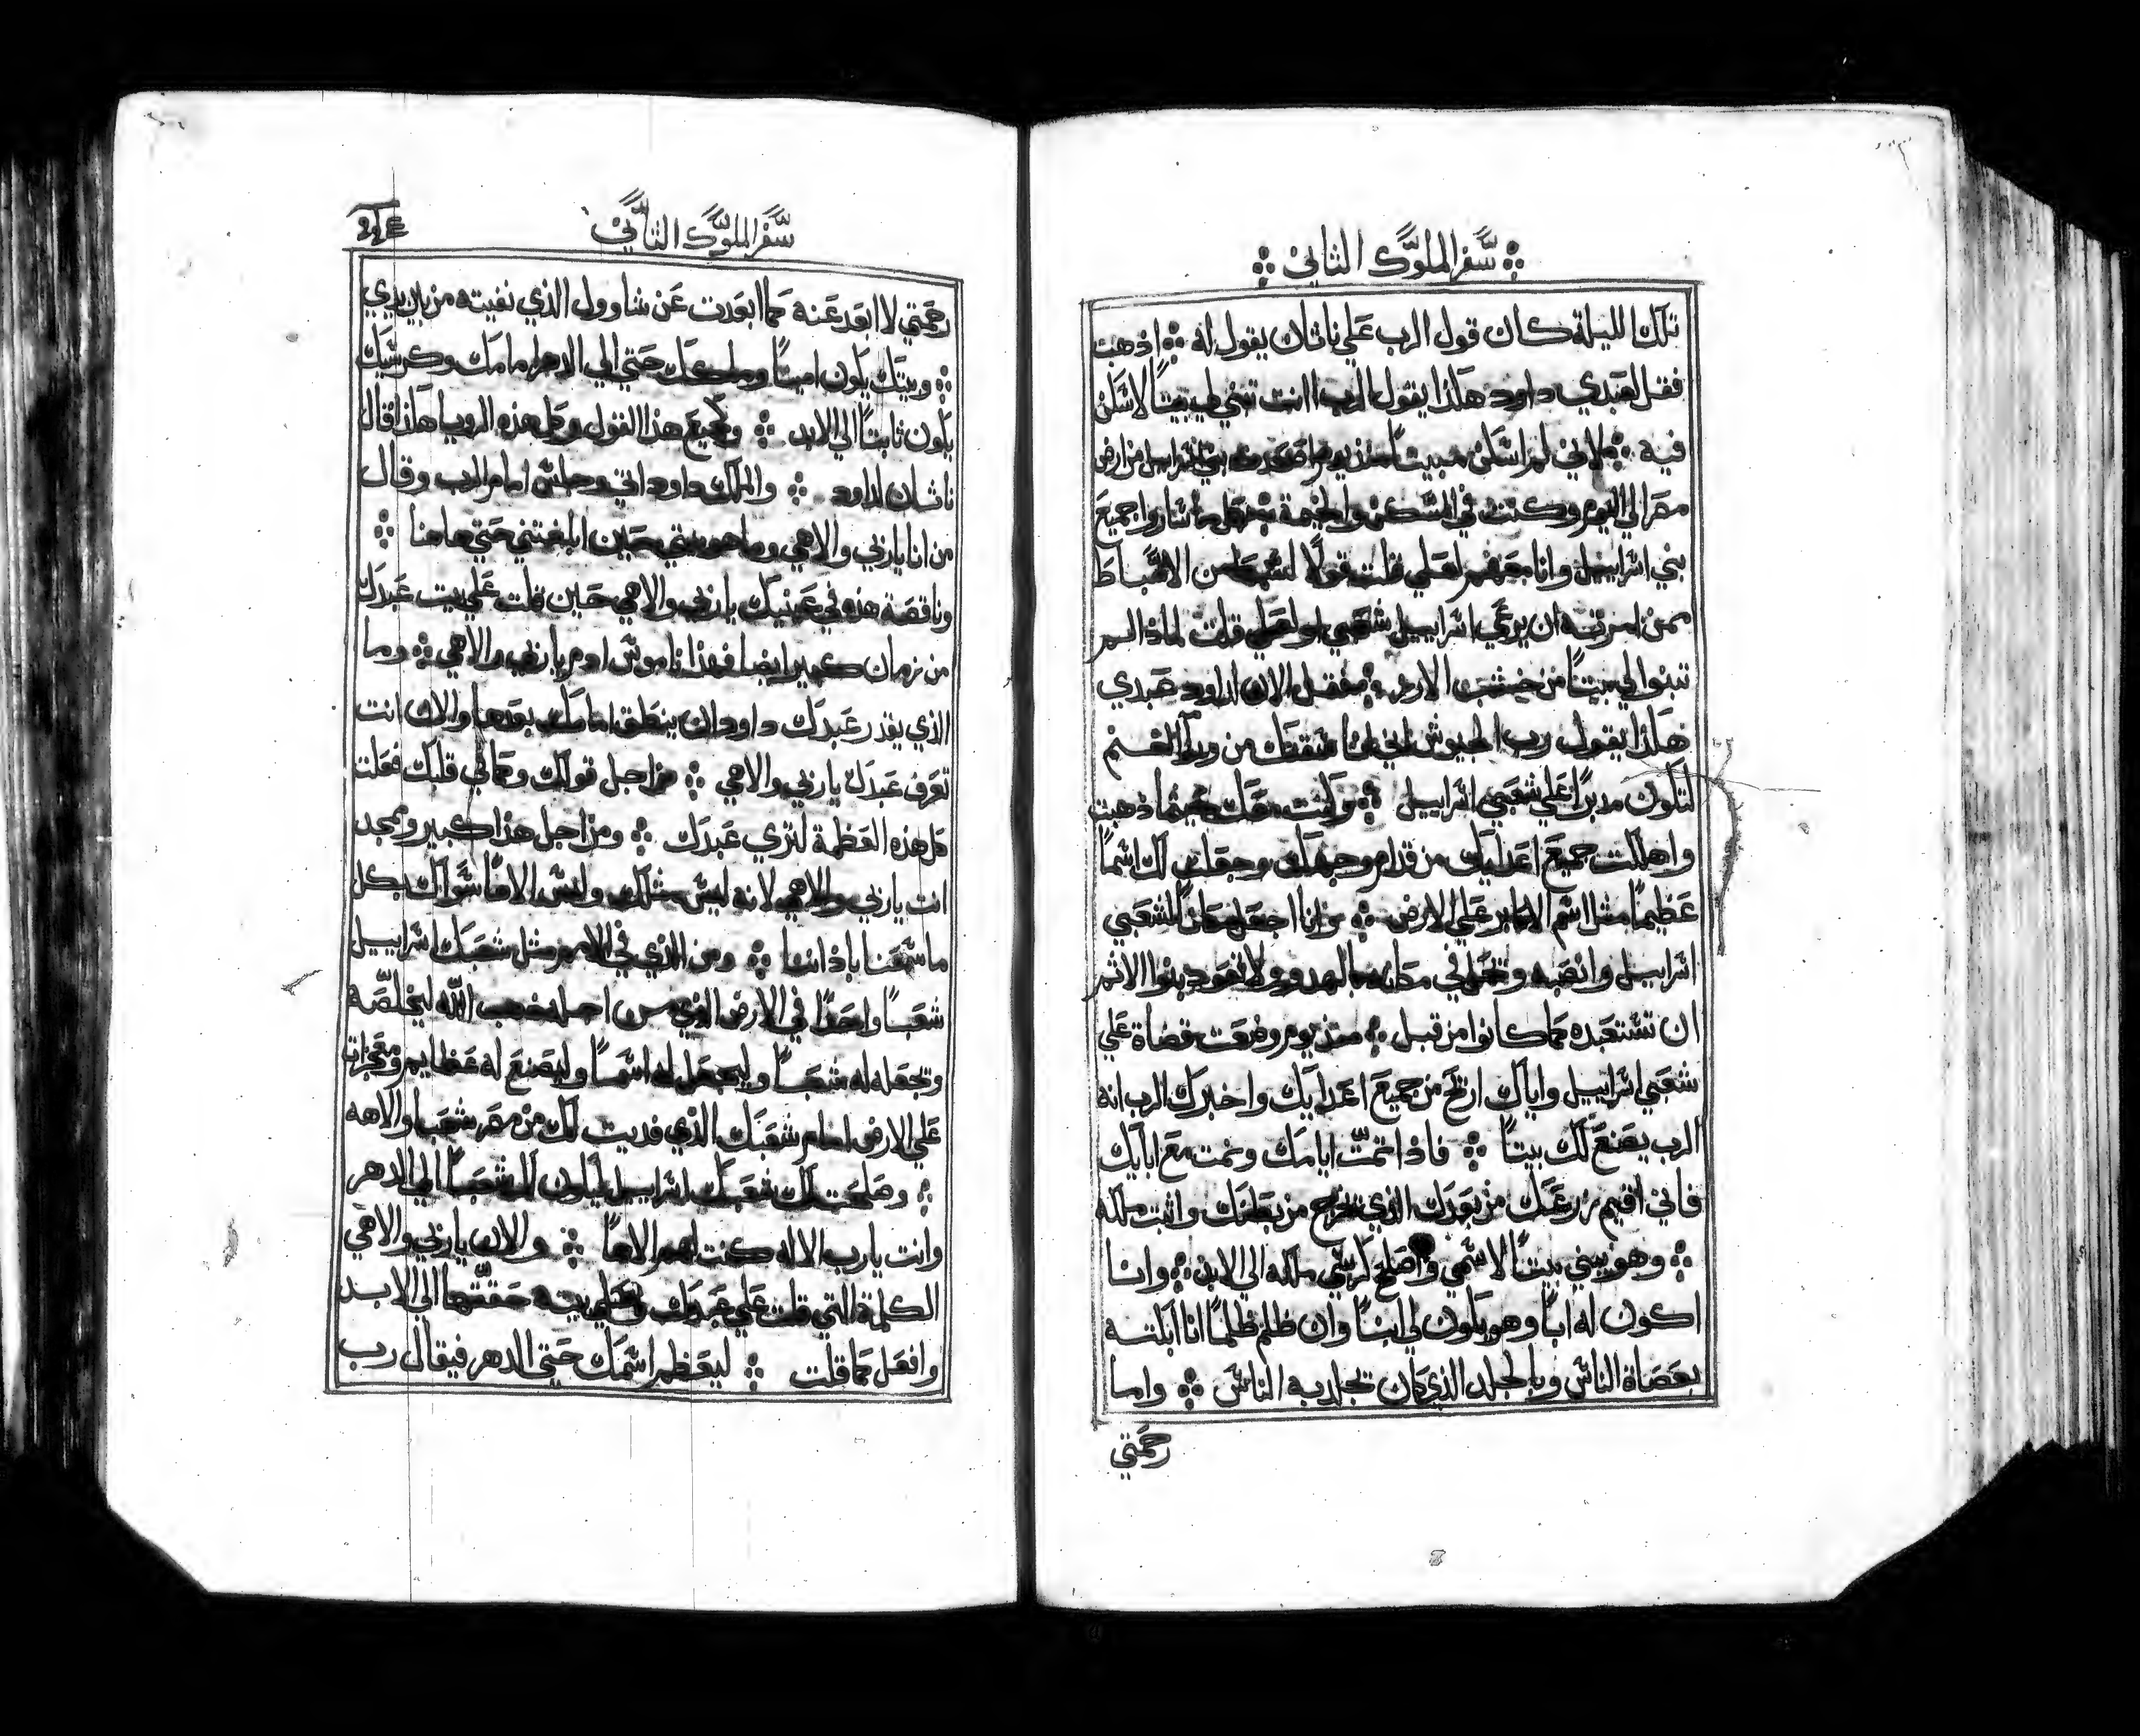 سفر الملوك الثاني
تلك الليلة كان قول الرب علي ناثان يقول له ؞ اذهب
فقل لعبدي داود هكذا يقول الرب اانت تبني لي بيتاً لاسكن
فيه ؞ لاني لم اسكن بيتاً منذ يوم اصعدت بني اسراييل من ارض
مصر الي اليوم وكنت في المسكن والخيمة ساروا جميع
بني اسراييل وانا معهم لعلي قلت قولاً من الاسباط
ممن امرته ان يرعي اسراييل شعبي لعلي قلت لماذا لم
تبنوا لي بيتاً من خشب الارز ؞ فقل الان لداود عبدي
هكذا يقول رب الجيوش اني انا من ورا الغنم
لتكون مدبراً علي شعبي اسراييل ؞ وكنت معك حيثما ذهبت
واهلكت جميع اعدايك من قدام وجهك وجعلت لك اسماً
عظيماً مثل اسم الاكابر علي الارض ؞ وانا اجعل مكاناً لشعبي
اسراييل وانصبه في مكانه بالهدو ولا تعود بنوا الاثم
ان تستعبده كما كانوا من قبل ؞ منذ يوم وضعت قضاة علي
شعبي اسراييل واياك ارتح من جميع اعدايك واخبرك الرب انه
الرب يصنع لك بيتاً ؞ فاذا تمت ايامك ونمت مع ابايك
فاني اقيم زرعك من بعدك الذي يخرج من بطنك واثبت ملكه
؞ وهو يبني بيتاً لاسمي واصلح كرسي ملكه الي الابد ؞ وانا
اكون له اباً وهو يكون لي ابناً وان ظلم ظلماً انا ابكته
بعصاة الناس وبالجلد الذي كان تجلد به الناس ؞ واما
رحمتي
سفر الملوك الثاني
رحمتي لا ابعد عنه كما ابعدت عن شاوول الذي نفيته من بين يدي
؞ وبيتك يكون اميناً وملكك حتي الي الدهر امامك وكرسيك
يكون ثابتاً الي الابد ؞ وكجميع هذا القول وكل هذه الرويا هكذا قال
ناثان لداود ؞ والملك داود اتي وجلس امام الرب وقال
من انا ياربي والاهي وما هو بيتي حين ابلغتني حتي هاهنا ؞
وناقصة هذه في عينيك ياربي والاهي حين قلت علي بيت عبدك
من زمان كبير ايضا فهذا ناموس ادم ياربي والاهي ؞ وما
الذي يقدر عبدك داود ان ينطق امامك بعدها والان انت
تعرف عبدك ياربي والاهي ؞ من اجل قولك وكما في قلبك فعلت
كل هذه العظمة لتري عبدك ؞ ومن اجل هذا كبير وممجد
انت ياربي والاهي لانه ليس مثلك وليس الاهاً سواك بكل
ما سمعنا باذاننا ؞ ومن الذي في الامم مثل شعبك اسراييل
شعباً واحداً في الارض الذي من اجله ذهب الله ليخلصه
وتجعله له شعباً وليجعل له اسماً وليصنع له عظايم ومعجزات
علي الارض امام شعبك الذي فديت لك من مصر شعب والاهه
؞ وصلحت لك شعبك اسراييل ليكون لك شعباً الي الدهر
وانت يارب الاله كنت لهم الاهاً ؞ والان ياربي والاهي
الكلمة التي قلت علي عبدك وعلي بيته حققتها الي الابد
وافعل كما قلت ؞ ليعظم اسمك حتي الدهر فيقال رب